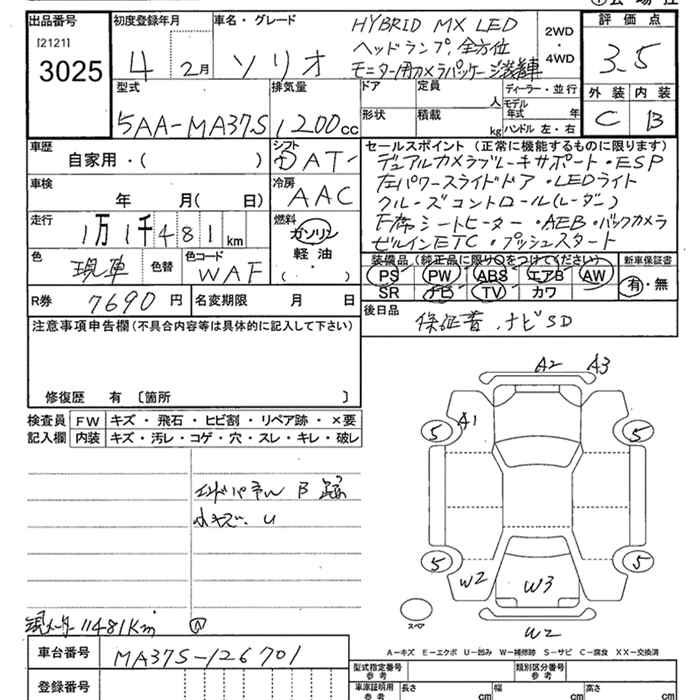 出品番号 初度登録年月 車名・グレード HYBRID MX LED 評価点
[2121] ヘッドランプ, 全方位 2WD・4WD
3025 4 2月 ソリオ モニター用カメラパッケージ装着車 3.5
型式 排気量 ドア 定員 人 ディーラー・並行 外装 内装
5AA-MA37S 1200cc 形状 積載 kg モデル年式 年 C B
ハンドル 左・右
車歴 シフト セールスポイント(正常に機能するものに限ります)
自家用・( ) DAT- デュアルカメラブレーキサポート・ESP
車検 冷房 左パワースライドドア・LEDライト
年 月( 日) AAC クルーズコントロール(レーダー)
走行 燃料 F席シートヒーター・AEB・バックカメラ
1万1千481km ガソリン ビルインETC・プッシュスタート
色 現車 色替 色コード WAF 軽油 ( ・ ) 装備品(純正品に限り○をつけてください) 新車保証書
PS PW ABS エアB AW 有・無
R券 7690円 名変期限 月 日 SR ナビ TV カワ
注意事項申告欄(不具合内容等は具体的に記入して下さい) 後日品 保証書、ナビSD
修復歴 有 [箇所 ]
検査員 FW キズ・飛石・ヒビ割・リペア跡・×要
記入欄 内装 キズ・汚レ・コゲ・穴・スレ・キレ・破レ
A2 A3
A1
5 5
小キズ. U
5 5
W2 W3
W2
スペア
現メーター 11481Km A
A-キズ E-エクボ U-凹み W-補修跡 S-サビ C-腐食 XX-交換済
車台番号 MA37S-126701
型式指定番号 参考 類別区分番号 参考
登録番号 車庫証明用 参考 長さ cm 幅 cm 高さ cm